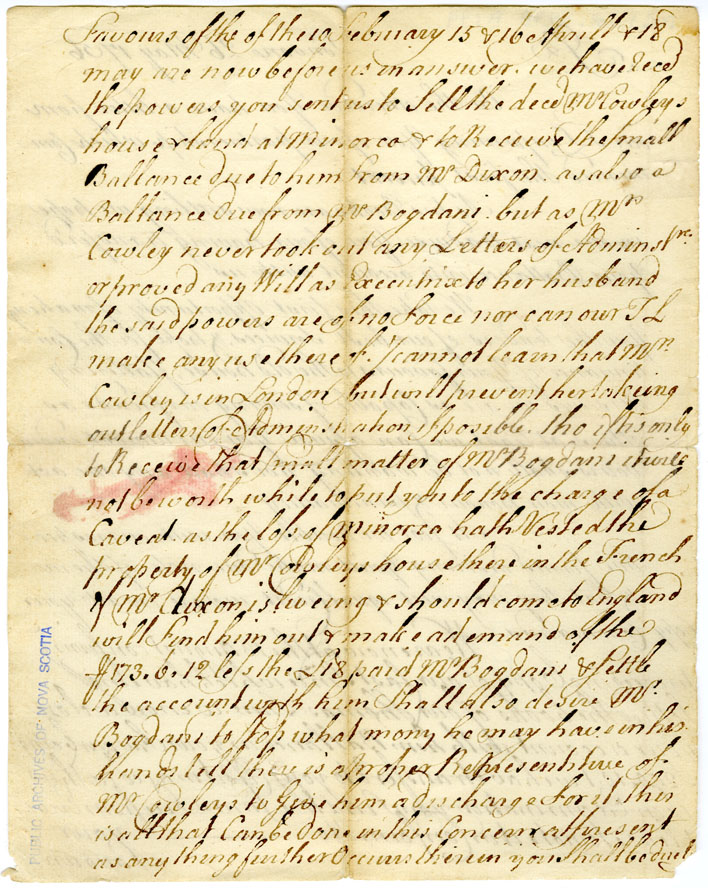 Favours of the of the 10 February 15 & 16 Aprill & 18
may are now before us in answer. we have Reced
the powers you sent us to Sell the deced Mr Cowleys
house & land at Minorca & to Receive the small
Ballance due to him from Mr Dixon. as also a
Ballance Due from Mr Bogdani. but as Mrs
Cowley never took out any Letters of Adminstre
or proved any Will as Executrix to her husband
the said powers are of no Force nor can our T L
make any use there of. I cannot learn that Mrs
Cowley is in London but will prevent her takeing
out letters of Adminstration if posible. tho if tis only
to Receive that small matter of Mr Bogdani it will
not be worth while to put you to the charge of a
Caveat. as the loss of Minorca hath Vested the
property of Mr Cowleys house there in the French
If Mr Dixon is liveing & should come to England
will Find him out & make a demand of the
173.0.12 less the £18 paid Mr Bogdani & Settle
the account with him Shall also desire Mr
Bogdani to Stop what mony he may have in his
hands tell there is a Proper Representitive of
Mr Cowleys to Give him a discharge For it. this
is all that Can Be Done in this Concern at present
as any thing further Occurs therein you Shall be
PUBLIC ARCHIVES OF NOVA SCOTIA